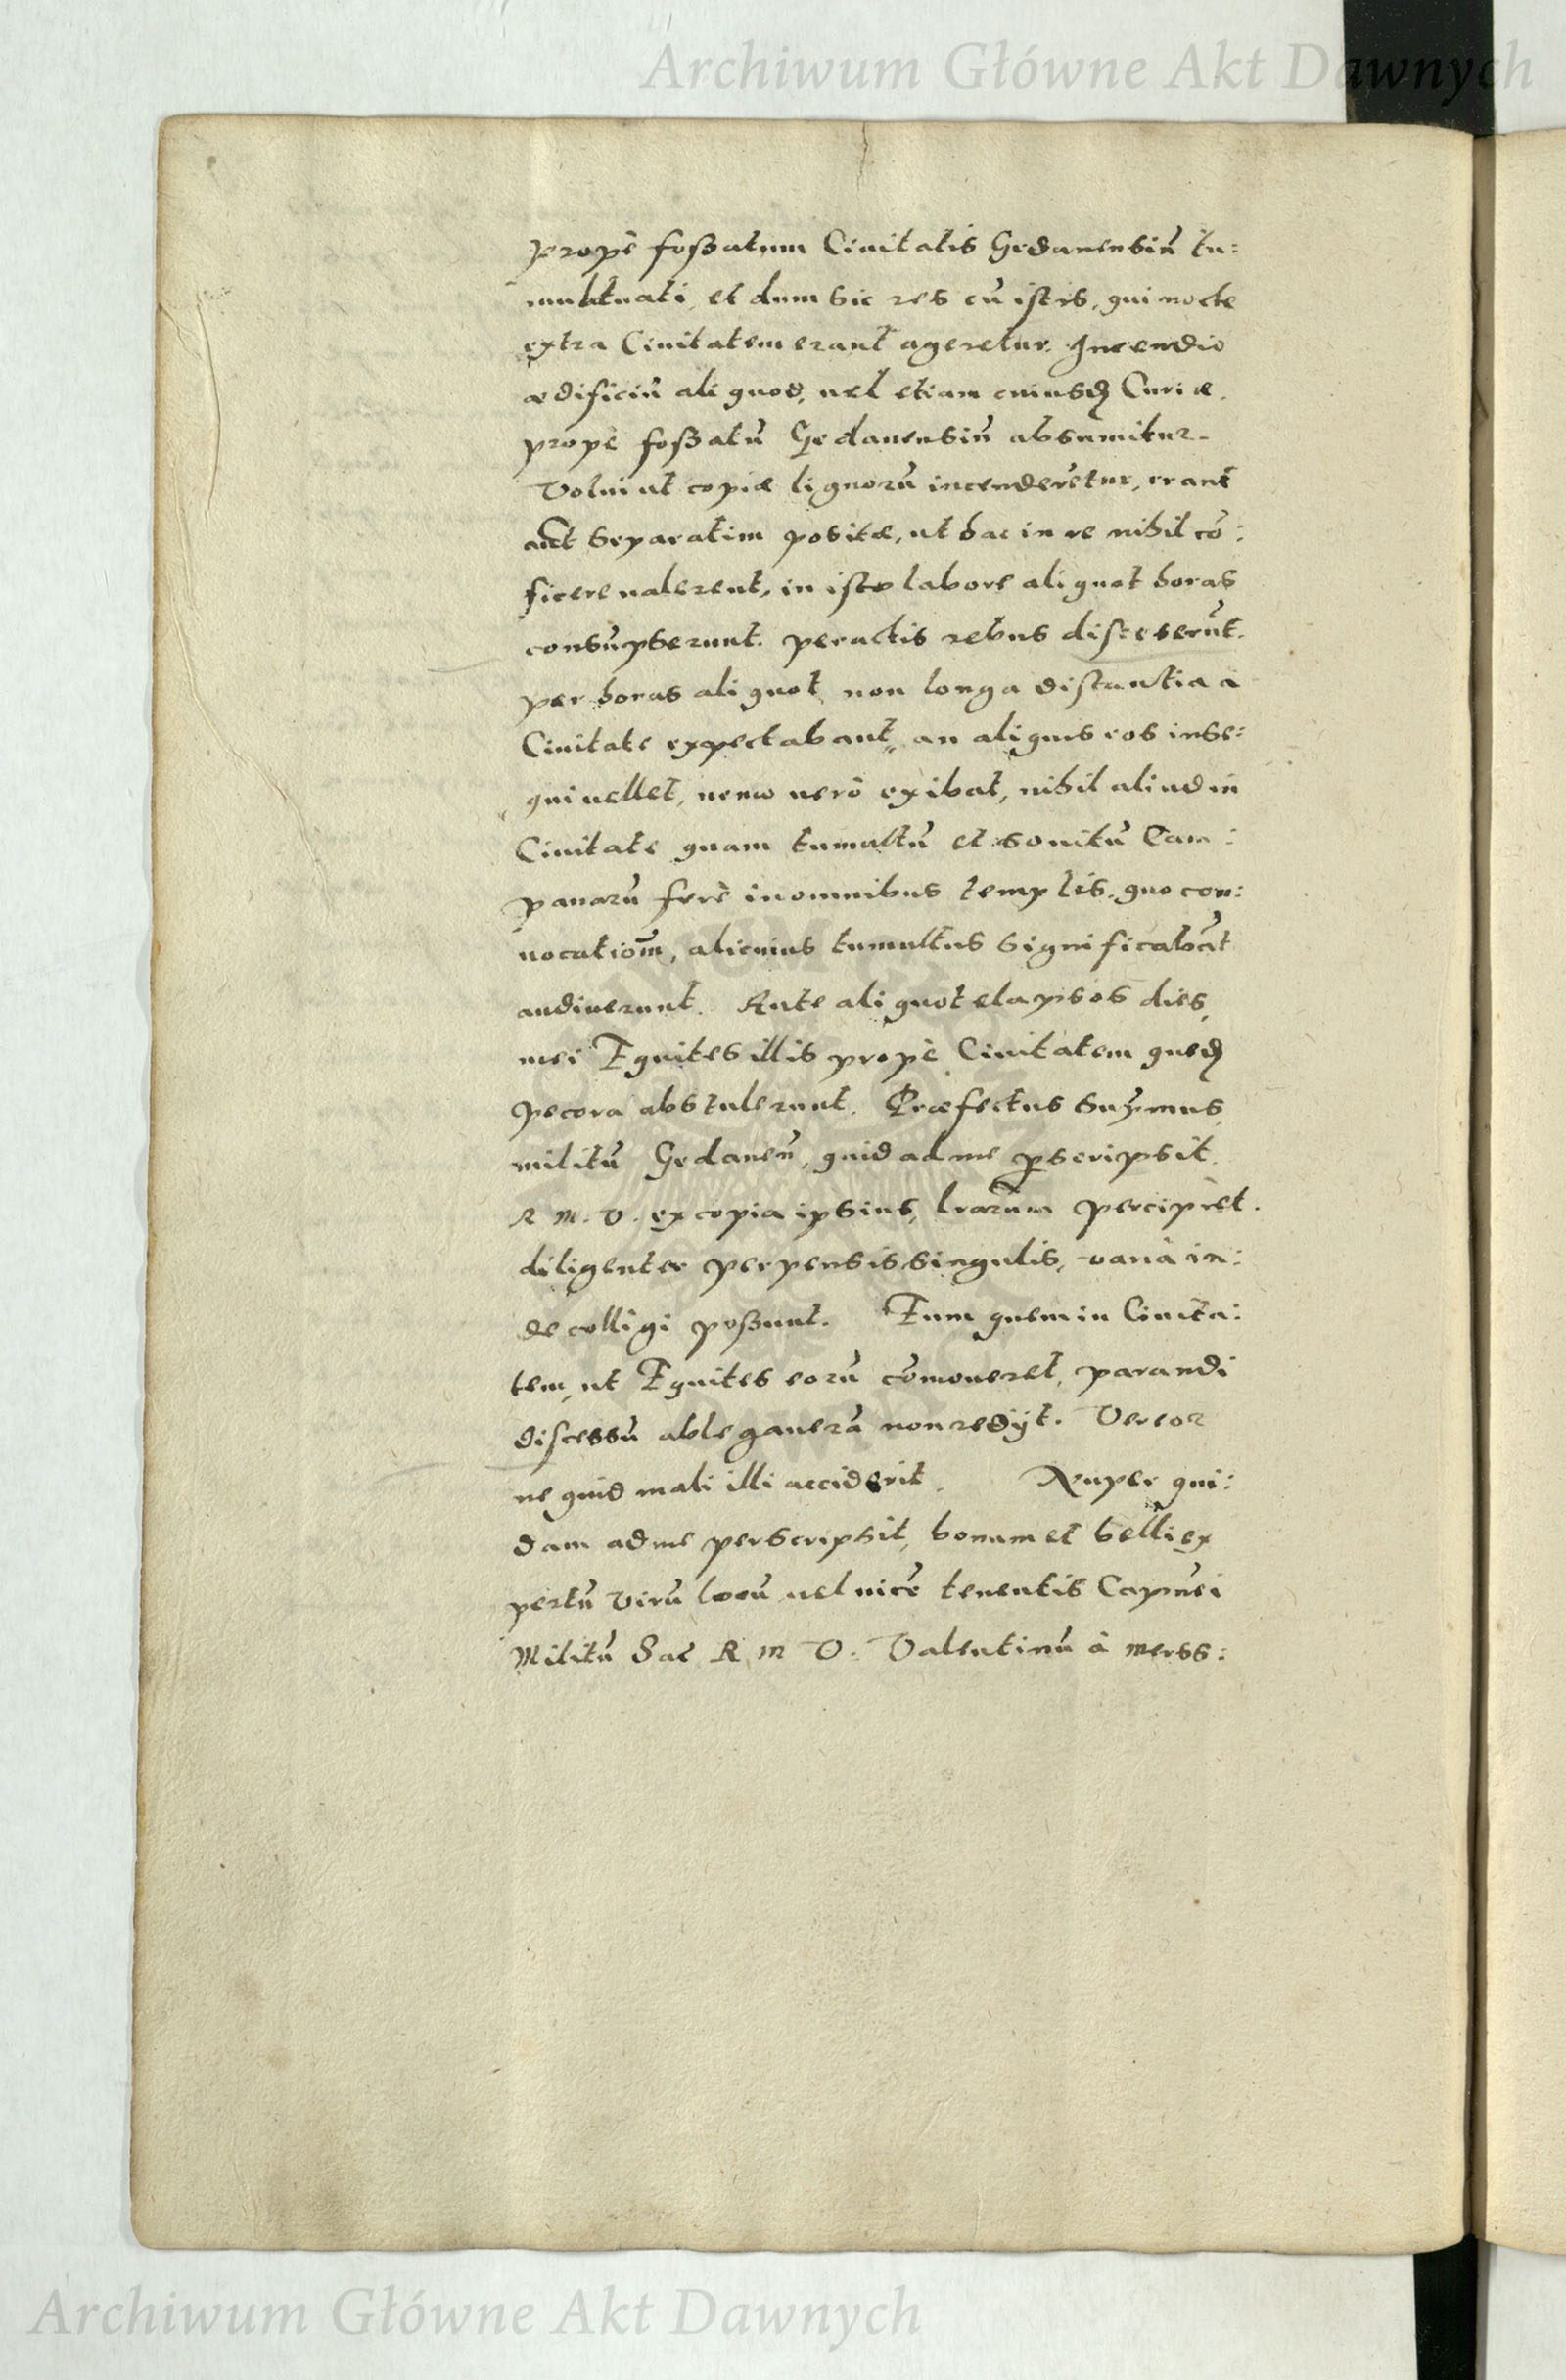 Archiwum Główne Akt Dawnych
propè foßatum Ciuitatis Gedanensiũ tu:
multuati, et dum sic res cũ istis, qui nocte
extra Ciuitatem erant ageretur. Incendio
ædificiũ aliquod, uel etiam cuiusdꝫ Curiæ,
propè foßatũ Gedanensiũ absumitur.
Volui ut copiæ lignorũ incenderẽtur, erant
aũt separatim positæ, ut hac in re nihil cõ:
ficere ualerent, in isto labore aliquot horas
consũpserunt. peractis rebus discesserũt.
per horas aliquot non longa distantia a
Ciuitate expectabant, an aliquis eos inse:
qui uellet, nemo uerò exibat, nihil aliud in
Ciuitate quam tumultũ et sonitũ Cam:
panarũ ferè in omnibus templis, quo con:
uocatiõm, alicuius tumultus significabãt
audiuerunt. Ante aliquot elapsos dies,
mei Equites illis propè Ciuitatem quedꝫ
pecora abstulerunt. Præfectus Sup̃mus
militũ Gedaneñ, quid ad me ꝑscripsit,
R. M. V. ex copia ipsius, lrarum percipiet.
diligenter perpensis singulis, varia in:
de colligi poßunt. Eum quem in Ciuita:
tem, ut Equites eorũ cõmoueret, parandi
discessũ ablegauerã non redijt. Vereor
ne quid mali illi acciderit. Nuper qui:
dam ad me perscripsit, bonum et belli ex
pertũ virũ locũ uel uicẽ tenentis Capnei
Militũ Sac R M V. Valentinũ à merss:
Archiwum Główne Akt Dawnych